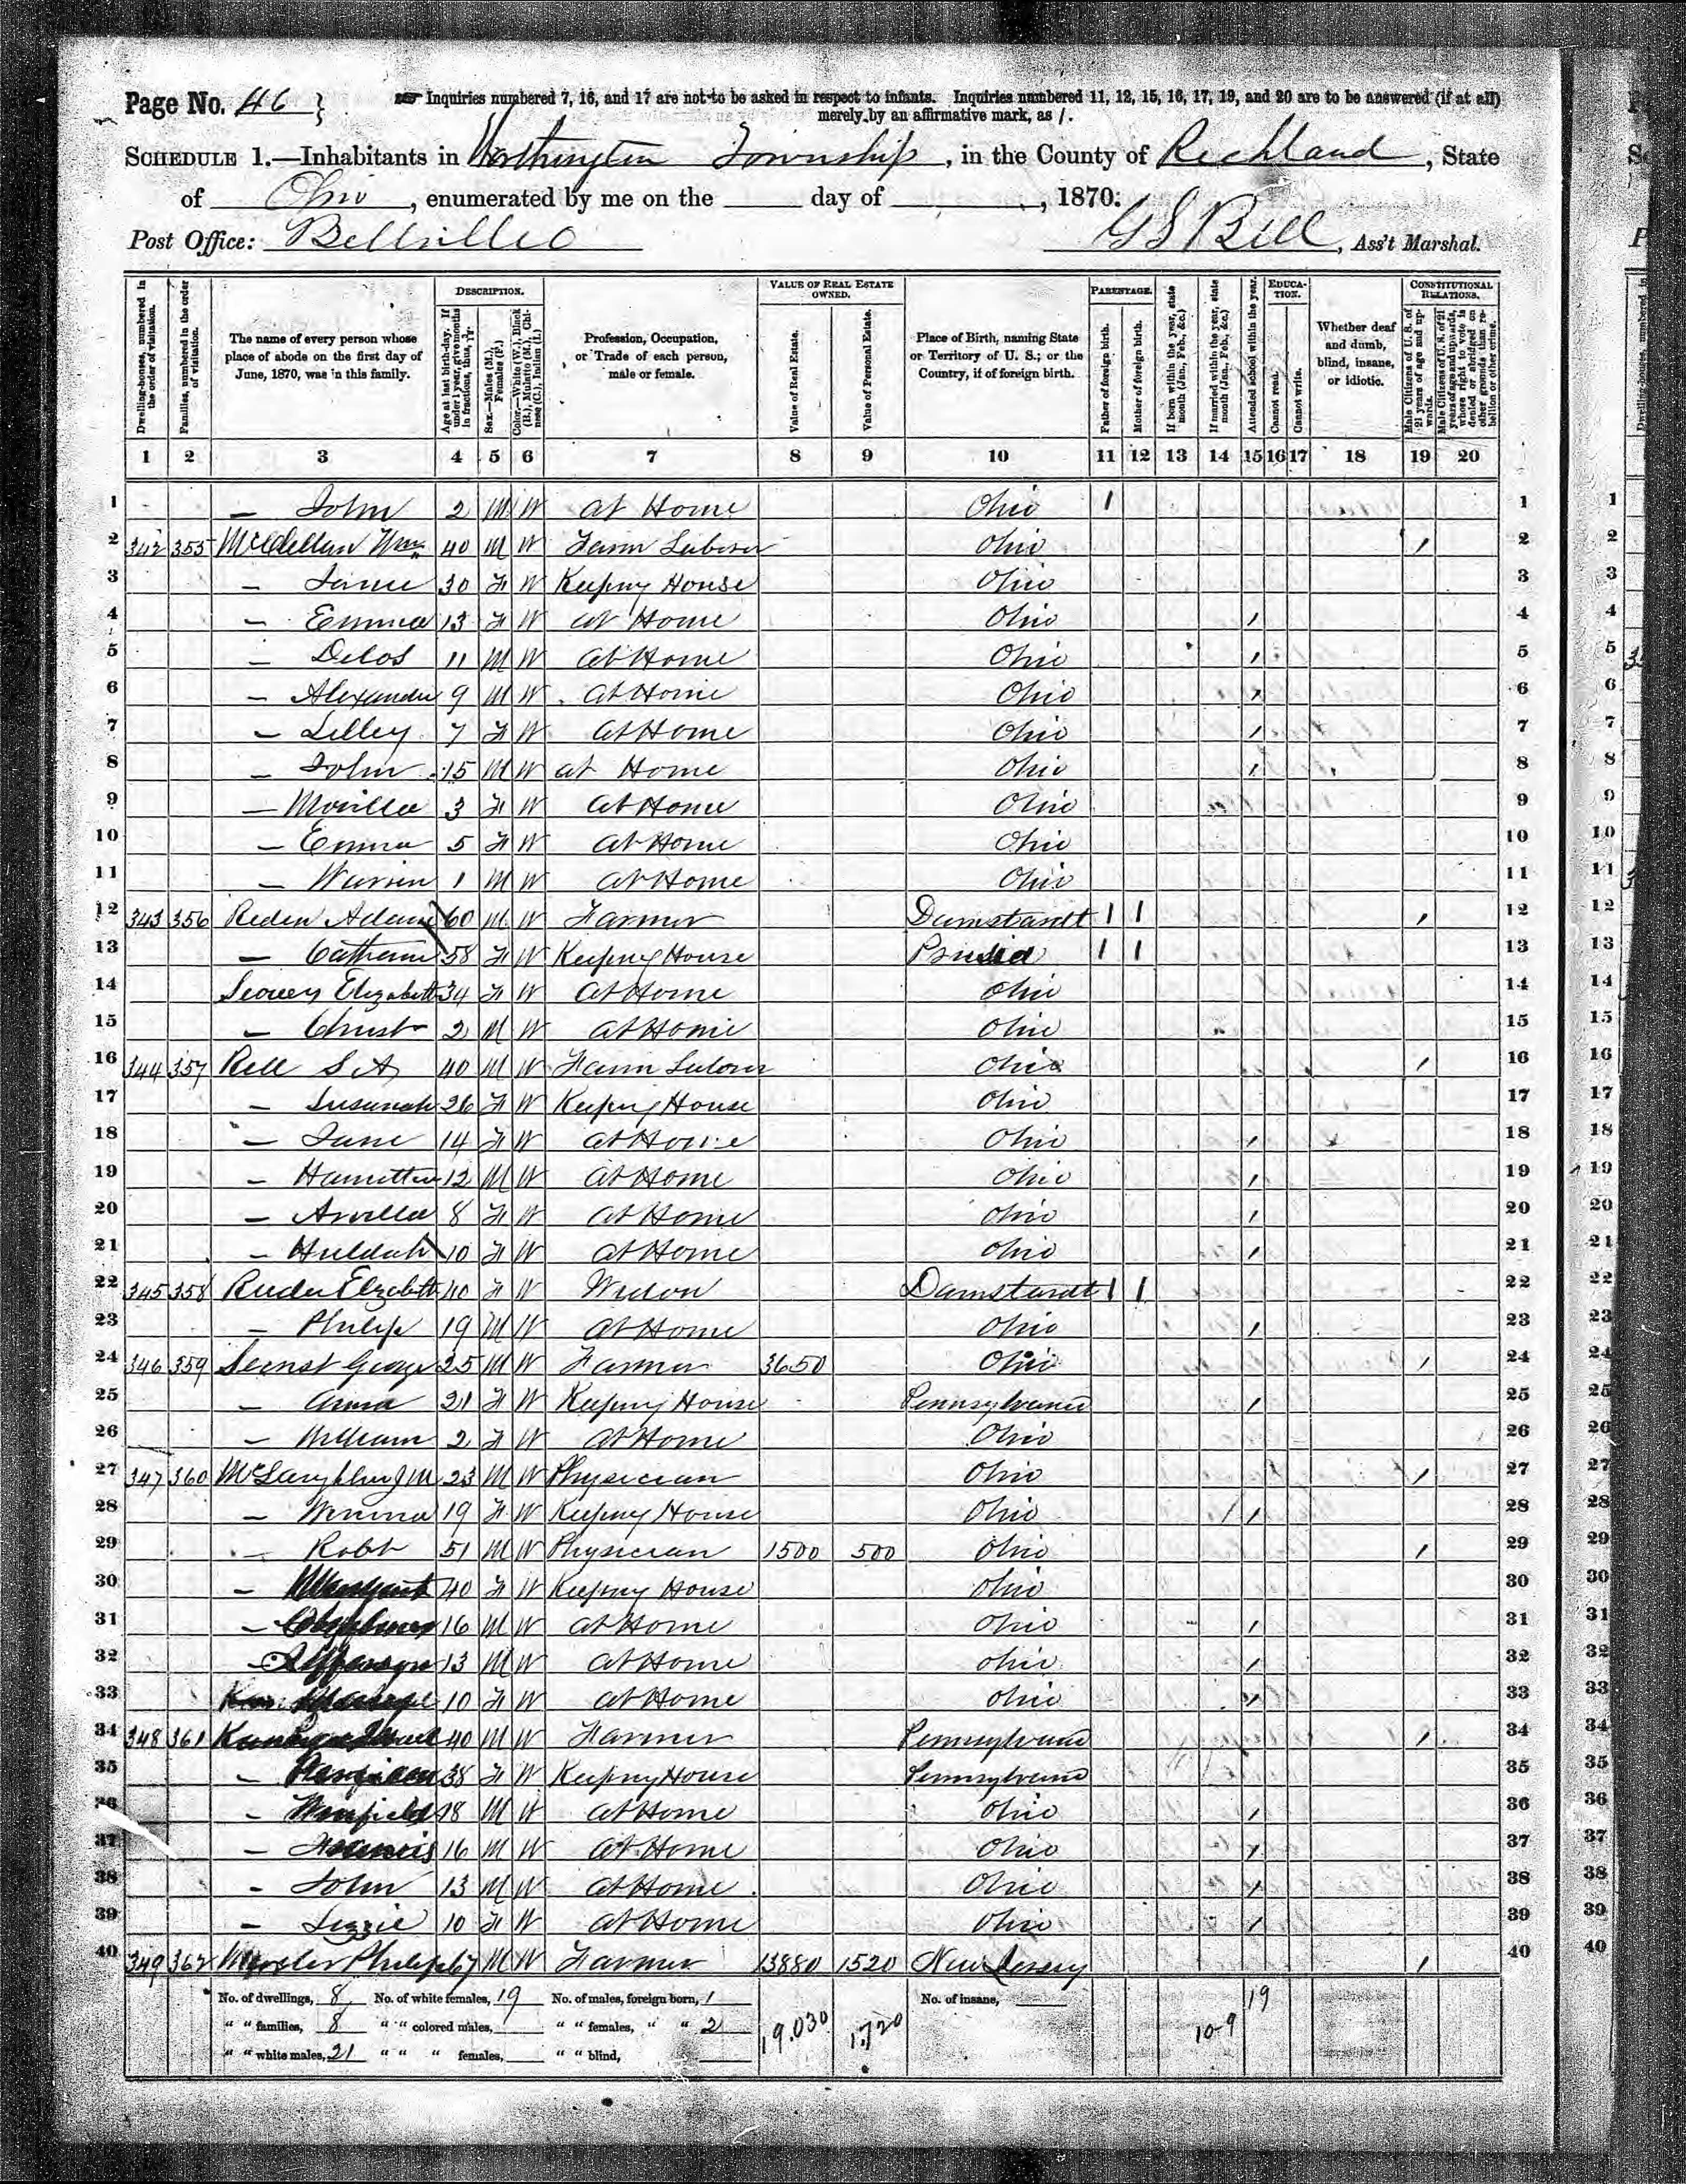 Page No. 46
Inquiries numbered 7, 16, and 17 are not to be asked in respect to infants. Inquiries numbered 11, 12, 15, 16, 17, 19, and 20 are to be answered (if at all)
merely by an affirmative mark, as /.
SCHEDULE 1.—Inhabitants in Worthington Township, in the County of Richland, State
of Ohio, enumerated by me on the ____ day of ____, 1870.
Post Office: Bellville G S Bell, Ass't Marshal.
DESCRIPTION. VALUE OF REAL ESTATE OWNED. PARENTAGE. EDUCATION. CONSTITUTIONAL RELATIONS.
Dwelling-houses, numbered in the order of visitation.
Families, numbered in the order of visitation.
The name of every person whose place of abode on the first day of June, 1870, was in this family.
Age at last birth-day. If under 1 year, give months in fractions, thus,
Sex.—Males (M.), Females (F.)
Color.—White (W.), Black (B.), Mulatto (M.), Chinese (C.), Indian (I.)
Profession, Occupation, or Trade of each person, male or female.
Value of Real Estate.
Value of Personal Estate.
Place of Birth, naming State or Territory of U. S.; or the Country, if of foreign birth.
Father of foreign birth.
Mother of foreign birth.
If born within the year, state month (Jan., Feb., &c.)
If married within the year, state month (Jan., Feb., &c.)
Attended school within the year.
Cannot read.
Cannot write.
Whether deaf and dumb, blind, insane, or idiotic.
Male Citizens of U. S. of 21 years of age and upwards.
Male Citizens of U. S. of 21 years of age and upwards, whose right to vote is denied or abridged on other grounds than rebellion or other crime.
1 2 3 4 5 6 7 8 9 10 11 12 13 14 15 16 17 18 19 20
1 — John 2 M W at Home Ohio / 1
2 342 355 McClellan Wm 40 M W Farm Laborer Ohio / 2
3 — Jane 30 F W Keeping House Ohio 3
4 — Emma 13 F W at Home Ohio / 4
5 — Delos 11 M W at Home Ohio / 5
6 — Alexander 9 M W at Home Ohio / 6
7 — Lilley 7 F W at Home Ohio / 7
8 — John 15 M W at Home Ohio / 8
9 — 3 F W at Home Ohio 9
10 — Emma 5 F W at Home Ohio 10
11 — Warren 1 M W at Home Ohio 11
12 343 356 Adam 60 M W Farmer Damstardt / / / 12
13 — 58 F W Keeping House / / 13
14 Elizabeth 34 F W at Home Ohio 14
15 — Christ 2 M W at Home Ohio 15
16 344 357 Rell S A 40 M W Farm Laborer Ohio / 16
17 — Susanah 26 F W Keeping House Ohio 17
18 — Jane 14 F W at Home Ohio / 18
19 — 12 M W at Home Ohio / 19
20 — Arvilla 8 F W at Home Ohio / 20
21 — Huldah 10 F W at Home Ohio / 21
22 345 358 Elizabeth 40 F W Widow Damstardt / / 22
23 — Philip 19 M W at Home Ohio / 23
24 346 359 George 25 M W Farmer 3650 Ohio / 24
25 — Anna 21 F W Keeping House Pennsylvania / 25
26 — William 2 F W at Home Ohio 26
27 347 360 McLaughlin J M 23 M W Physician Ohio / 27
28 — 19 F W Keeping House Ohio / / 28
29 — Robt 51 M W Physician 1500 500 Ohio / 29
30 — 40 F W Keeping House Ohio 30
31 — 16 M W at Home Ohio / 31
32 — Jefferson 13 M W at Home Ohio / 32
33 10 F W at Home Ohio / 33
34 348 361 40 M W Farmer Pennsylvania / 34
35 — 38 F W Keeping House Pennsylvania 35
36 — Winfield 18 M W at Home Ohio / 36
37 — Francis 16 M W at Home Ohio / 37
38 — John 13 M W at Home Ohio / 38
39 — Lizzie 10 F W at Home Ohio / 39
40 349 362 Philip 67 M W Farmer 13880 1520 New Jersey / 40
No. of dwellings, 8 No. of white females, 19 No. of males, foreign born, 1 No. of insane, 19
" " families, 8 " " colored males, " " females, " " 2 19.030 1.720 10-9
" " white males, 21 " " " females, " " blind,